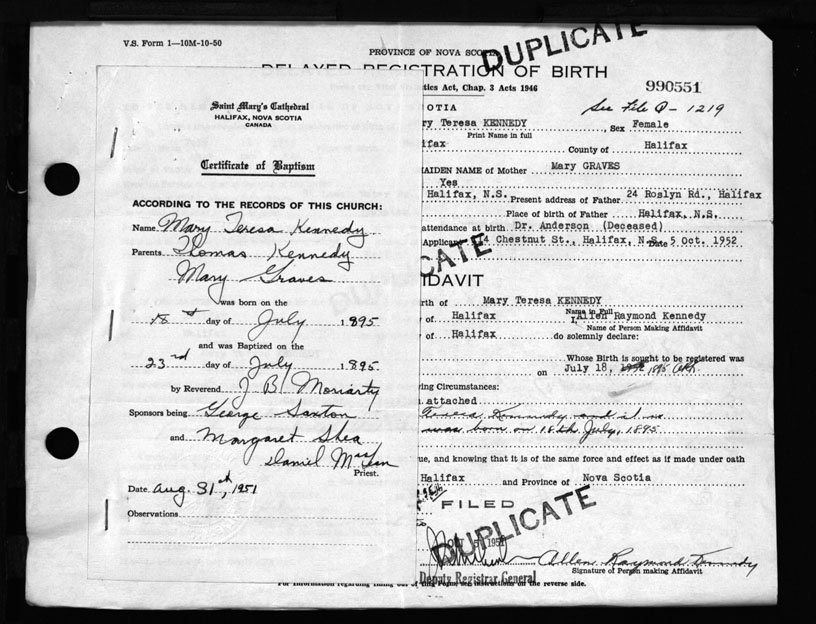 V.S. Form 1—10M-10-50
PROVINCE OF NOVA SCOTIA
DUPLICATE
DELAYED REGISTRATION OF BIRTH
tics Act, Chap. 3 Acts 1946
990551
See File D - 1219
Saint Mary's Cathedral
HALIFAX, NOVA SCOTIA
CANADA
Certificate of Baptism
ACCORDING TO THE RECORDS OF THIS CHURCH:
Name Mary Teresa Kennedy
Parents Thomas Kennedy
Mary Graves
was born on the
18th day of July 1895
and was Baptized on the
23rd day of July 1895
by Reverend J B Moriarty
Sponsors being George Saxton
and Margaret Shea
Daniel
Priest.
Date Aug. 31st, 1951
Observations
COTIA
ry Teresa KENNEDY, Sex Female
Print Name in full
ifax County of Halifax
AIDEN NAME of Mother Mary GRAVES
Yes
Halifax, N.S. Present address of Father 24 Roslyn Rd., Halifax
Place of birth of Father Halifax, N.S.
attendance at birth Dr. Anderson (Deceased)
Applicant 14 Chestnut St., Halifax, N.S. Date 5 Oct. 1952
CATE
IDAVIT
rth of Mary Teresa KENNEDY
Name in Full
of Halifax I, Allen Raymond Kennedy
Name of Person Making Affidavit
of Halifax do solemnly declare:
Whose Birth is sought to be registered was
on July 18, 1895
ing Circumstances:
attached
Teresa Kennedy and
was born on 18th July, 1895
ue, and knowing that it is of the same force and effect as if made under oath
Halifax and Province of Nova Scotia
FILED
DUPLICATE
OCT
Allen Raymond Kennedy
Signature of Person making Affidavit
Deputy Registrar General
For information regarding filling out of this Form, see instructions on the reverse side.